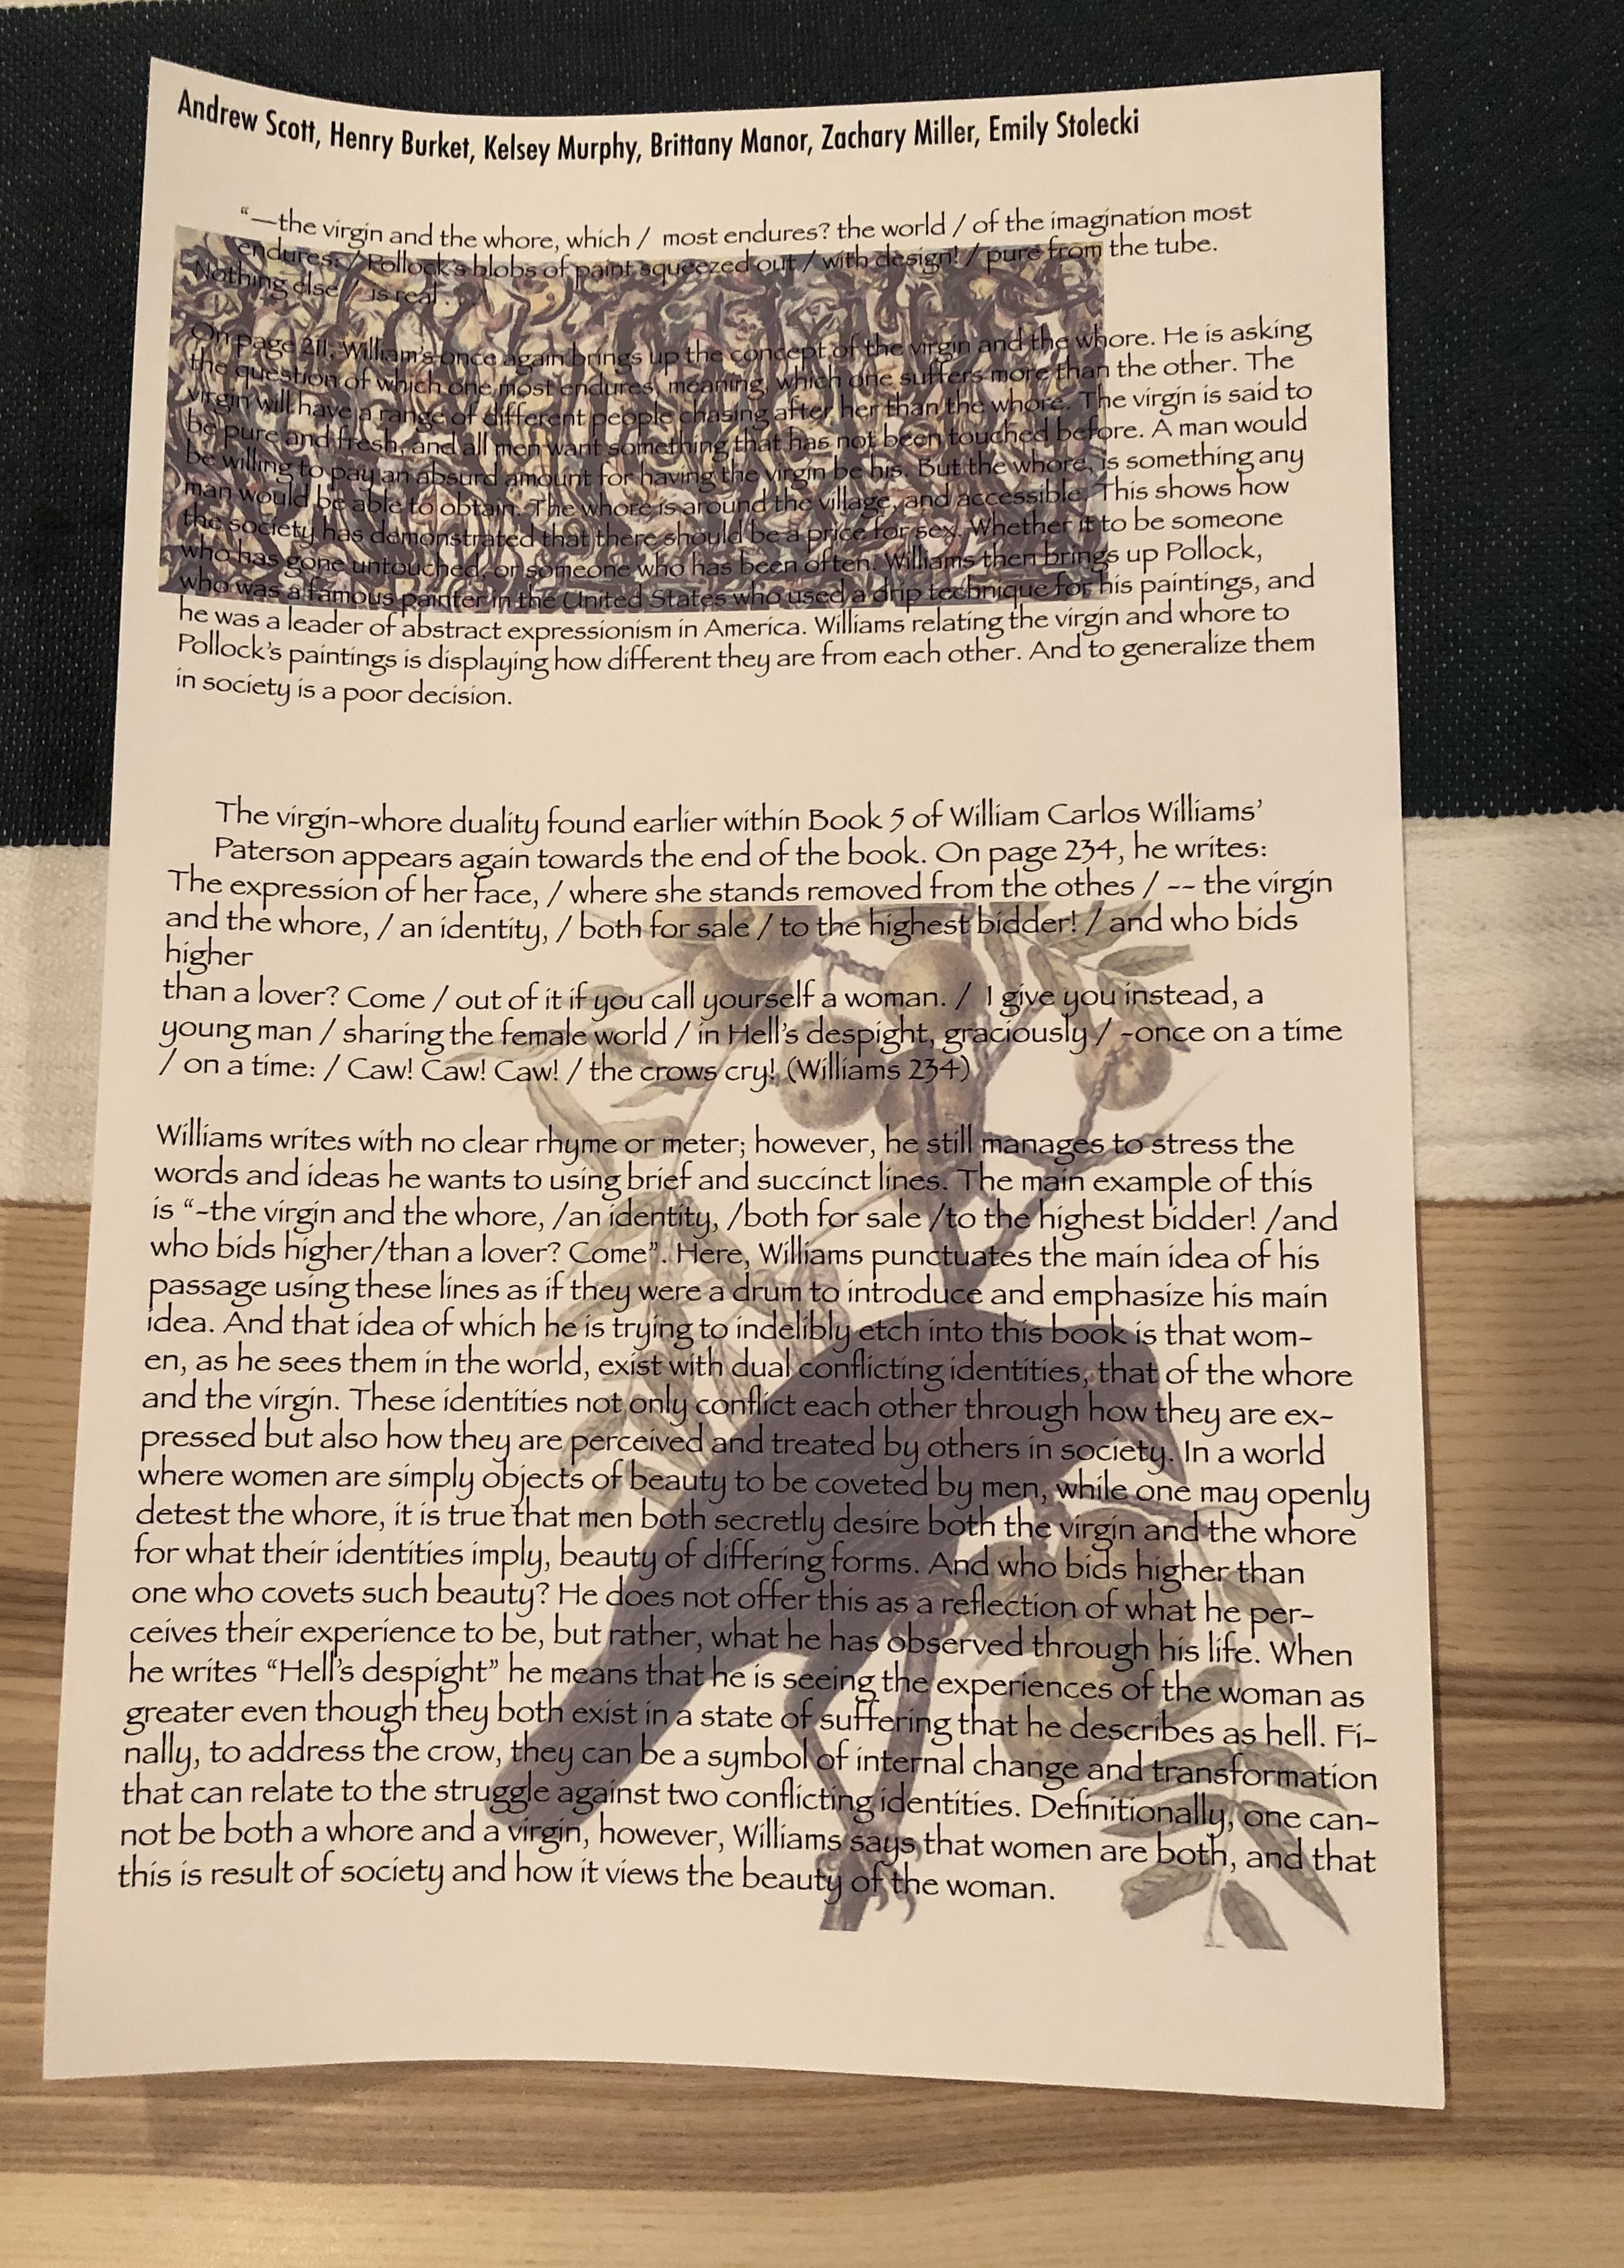 Andrew Scott, Henry Burket, Kelsey Murphy, Brittany Manor, Zachary Miller, Emily Stolecki
“—the virgin and the whore, which / most endures? the world / of the imagination most
endures: / Pollock’s blobs of paint squeezed out / with design! / pure from the tube.
Nothing else / is real . . .”
On page 211, William’s once again brings up the concept of the virgin and the whore. He is asking
the question of which one most endures, meaning, which one suffers more than the other. The
virgin will have a range of different people chasing after her than the whore. The virgin is said to
be pure and fresh, and all men want something that has not been touched before. A man would
be willing to pay an absurd amount for having the virgin be his. But the whore, is something any
man would be able to obtain. The whore is around the village, and accessible. This shows how
the society has demonstrated that there should be a price for sex. Whether it to be someone
who has gone untouched, or someone who has been often. Williams then brings up Pollock,
who was a famous painter in the United States who used a drip technique for his paintings, and
he was a leader of abstract expressionism in America. Williams relating the virgin and whore to
Pollock’s paintings is displaying how different they are from each other. And to generalize them
in society is a poor decision.
The virgin-whore duality found earlier within Book 5 of William Carlos Williams’
Paterson appears again towards the end of the book. On page 234, he writes:
The expression of her face, / where she stands removed from the othes / -- the virgin
and the whore, / an identity, / both for sale / to the highest bidder! / and who bids
higher
than a lover? Come / out of it if you call yourself a woman. / I give you instead, a
young man / sharing the female world / in Hell’s despight, graciously / -once on a time
/ on a time: / Caw! Caw! Caw! / the crows cry! (Williams 234)
Williams writes with no clear rhyme or meter; however, he still manages to stress the
words and ideas he wants to using brief and succinct lines. The main example of this
is “-the virgin and the whore, /an identity, /both for sale /to the highest bidder! /and
who bids higher/than a lover? Come”. Here, Williams punctuates the main idea of his
passage using these lines as if they were a drum to introduce and emphasize his main
idea. And that idea of which he is trying to indelibly etch into this book is that wom-
en, as he sees them in the world, exist with dual conflicting identities, that of the whore
and the virgin. These identities not only conflict each other through how they are ex-
pressed but also how they are perceived and treated by others in society. In a world
where women are simply objects of beauty to be coveted by men, while one may openly
detest the whore, it is true that men both secretly desire both the virgin and the whore
for what their identities imply, beauty of differing forms. And who bids higher than
one who covets such beauty? He does not offer this as a reflection of what he per-
ceives their experience to be, but rather, what he has observed through his life. When
he writes “Hell’s despight” he means that he is seeing the experiences of the woman as
greater even though they both exist in a state of suffering that he describes as hell. Fi-
nally, to address the crow, they can be a symbol of internal change and transformation
that can relate to the struggle against two conflicting identities. Definitionally, one can-
not be both a whore and a virgin, however, Williams says that women are both, and that
this is result of society and how it views the beauty of the woman.